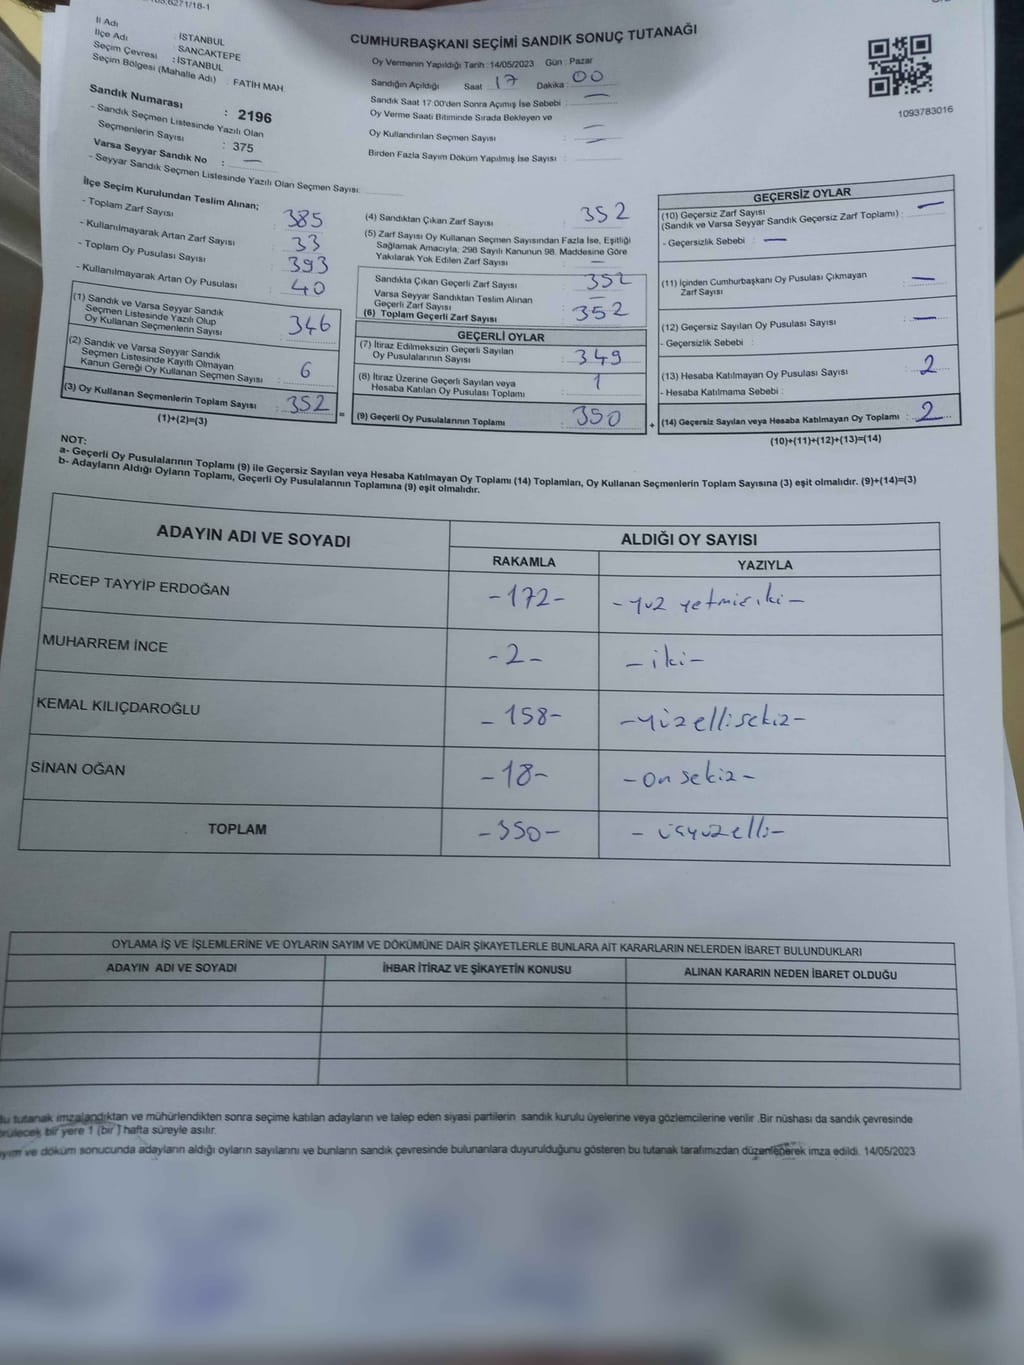 6271/18-1
İl Adı : İSTANBUL
İlçe Adı : SANCAKTEPE
Seçim Çevresi : İSTANBUL
Seçim Bölgesi (Mahalle Adı) : FATİH MAH.
Sandık Numarası : 2196
- Sandık Seçmen Listesinde Yazılı Olan
Seçmenlerin Sayısı : 375
Varsa Seyyar Sandık No : —
- Seyyar Sandık Seçmen Listesinde Yazılı Olan Seçmen Sayısı:
CUMHURBAŞKANI SEÇİMİ SANDIK SONUÇ TUTANAĞI
Oy Vermenin Yapıldığı Tarih : 14/05/2023 Gün : Pazar
Sandığın Açıldığı Saat : 17 Dakika : 00
Sandık Saat 17:00'den Sonra Açımış İse Sebebi : —
Oy Verme Saati Bitiminde Sırada Bekleyen ve
Oy Kullandırılan Seçmen Sayısı : —
Birden Fazla Sayım Döküm Yapılmış İse Sayısı : —
1093783016
İlçe Seçim Kurulundan Teslim Alınan;
- Toplam Zarf Sayısı : 385
- Kullanılmayarak Artan Zarf Sayısı : 33
- Toplam Oy Pusulası Sayısı : 393
- Kullanılmayarak Artan Oy Pusulası : 40
(1) Sandık ve Varsa Seyyar Sandık
Seçmen Listesinde Yazılı Olup
Oy Kullanan Seçmenlerin Sayısı : 346
(2) Sandık ve Varsa Seyyar Sandık
Seçmen Listesinde Kayıtlı Olmayan
Kanun Gereği Oy Kullanan Seçmen Sayısı : 6
(3) Oy Kullanan Seçmenlerin Toplam Sayısı : 352
(1)+(2)=(3)
=
(4) Sandıktan Çıkan Zarf Sayısı : 352
(5) Zarf Sayısı Oy Kullanan Seçmen Sayısından Fazla İse, Eşitliği
Sağlamak Amacıyla, 298 Sayılı Kanunun 98. Maddesine Göre
Yakılarak Yok Edilen Zarf Sayısı : —
Sandıkta Çıkan Geçerli Zarf Sayısı : 352
Varsa Seyyar Sandıktan Teslim Alınan
Geçerli Zarf Sayısı : —
(6) Toplam Geçerli Zarf Sayısı : 352
GEÇERLİ OYLAR
(7) İtiraz Edilmeksizin Geçerli Sayılan
Oy Pusulalarının Sayısı : 349
(8) İtiraz Üzerine Geçerli Sayılan veya
Hesaba Katılan Oy Pusulası Toplamı : 1
(9) Geçerli Oy Pusulalarının Toplamı : 350
+
GEÇERSİZ OYLAR
(10) Geçersiz Zarf Sayısı
(Sandık ve Varsa Seyyar Sandık Geçersiz Zarf Toplamı) : —
- Geçersizlik Sebebi : —
(11) İçinden Cumhurbaşkanı Oy Pusulası Çıkmayan
Zarf Sayısı : —
(12) Geçersiz Sayılan Oy Pusulası Sayısı : —
- Geçersizlik Sebebi :
(13) Hesaba Katılmayan Oy Pusulası Sayısı : 2
- Hesaba Katılmama Sebebi :
(14) Geçersiz Sayılan veya Hesaba Katılmayan Oy Toplamı : 2
(10)+(11)+(12)+(13)=(14)
NOT:
a- Geçerli Oy Pusulalarının Toplamı (9) ile Geçersiz Sayılan veya Hesaba Katılmayan Oy Toplamı (14) Toplamları, Oy Kullanan Seçmenlerin Toplam Sayısına (3) eşit olmalıdır. (9)+(14)=(3)
b- Adayların Aldığı Oyların Toplamı, Geçerli Oy Pusulalarının Toplamına (9) eşit olmalıdır.
ADAYIN ADI VE SOYADI ALDIĞI OY SAYISI
RAKAMLA YAZIYLA
RECEP TAYYİP ERDOĞAN -172- -yüz yetmişiki-
MUHARREM İNCE -2- -iki-
KEMAL KILIÇDAROĞLU -158- -yüzellisekiz-
SİNAN OĞAN -18- -on sekiz-
TOPLAM -350- -üçyüzelli-
OYLAMA İŞ VE İŞLEMLERİNE VE OYLARIN SAYIM VE DÖKÜMÜNE DAİR ŞİKAYETLERLE BUNLARA AİT KARARLARIN NELERDEN İBARET BULUNDUKLARI
ADAYIN ADI VE SOYADI İHBAR İTİRAZ VE ŞİKAYETİN KONUSU ALINAN KARARIN NEDEN İBARET OLDUĞU
Bu tutanak imzalandıktan ve mühürlendikten sonra seçime katılan adayların ve talep eden siyasi partilerin sandık kurulu üyelerine veya gözlemcilerine verilir .Bir nüshası da sandık çevresinde
bir yere 1 (bir ) hafta süreyle asılır.
ve döküm sonucunda adayların aldığı oyların sayılarını ve bunların sandık çevresinde bulunanlara duyurulduğunu gösteren bu tutanak tarafımızdan düzenlenerek imza edildi. 14/05/2023